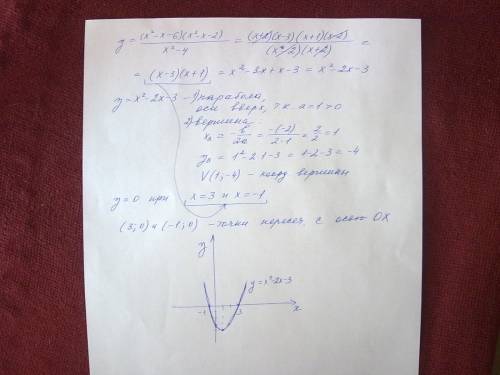 y = (x²-x-6)(x²-x-2)/(x²-4) = (x+2)(x-3)(x+1)(x-2)/((x-2)(x+2)) =
= (x-3)(x+1) = x²-3x+x-3 = x²-2x-3
y = x²-2x-3 - 1) парабола,
оси вверх, т.к. a=1>0
2) вершина
x₀ = -b/2a = -(-2)/2·1 = 2/2 = 1
y₀ = 1²-2·1-3 = 1-2-3 = -4
V(1;-4) - коорд вершины
y=0 при x=3 и x=-1
(3;0) и (-1;0) - точки пересеч. с осью OX
y
y=x²-2x-3
-1 3 x